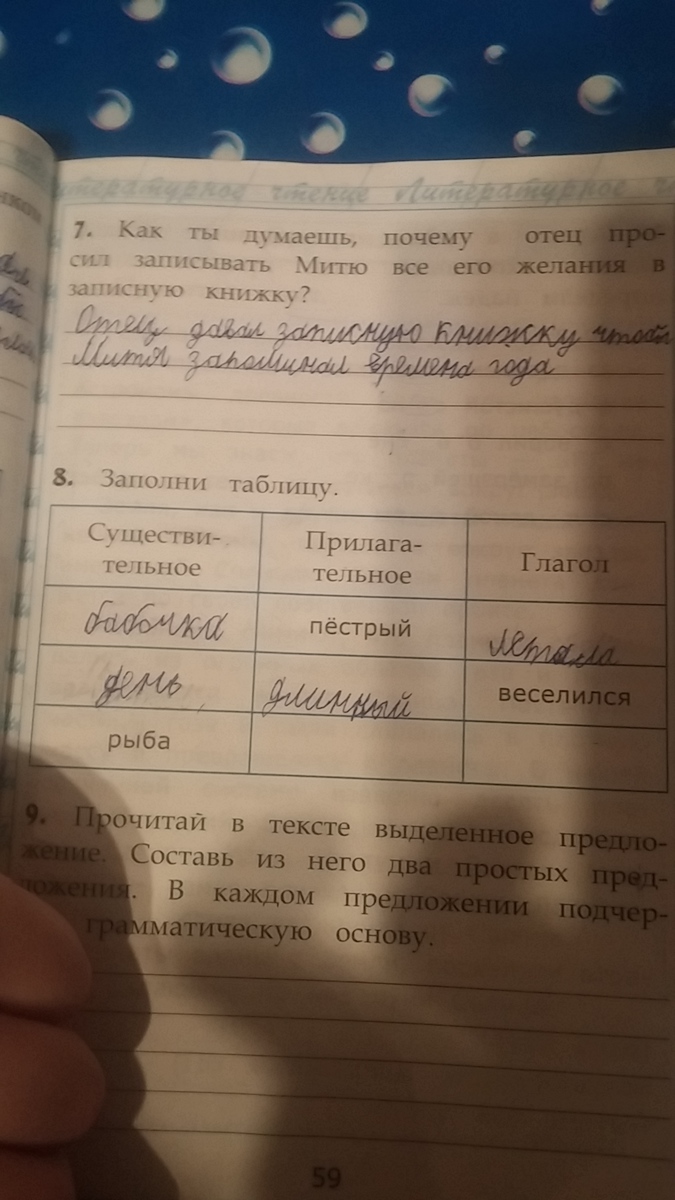 Литературное чтение Литературное
7. Как ты думаешь, почему отец про-
сил записывать Митю все его желания в
записную книжку?
Отец давал записную книжку чтобы
Митя запоминал времена года
8. Заполни таблицу.
Существи-
тельное
Прилага-
тельное
Глагол
бабочка
пёстрый
летала
день
длинный
веселился
рыба
9. Прочитай в тексте выделенное предло-
жение. Составь из него два простых пред-
ложения. В каждом предложении подчер-
грамматическую основу.
59